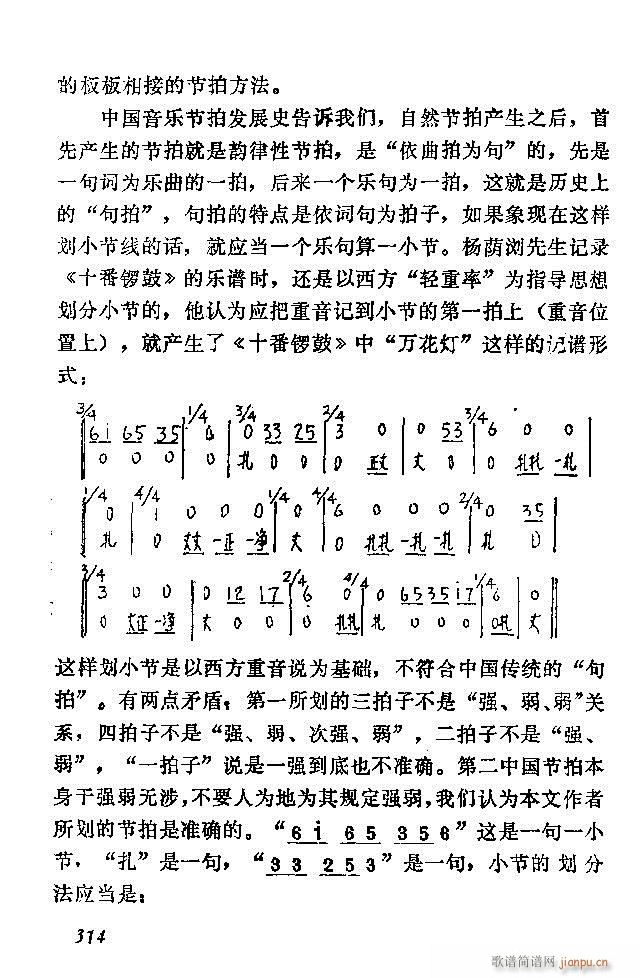 的板板相接的节拍方法。
中国音乐节拍发展史告诉我们，自然节拍产生之后，首
先产生的节拍就是韵律性节拍，是“依曲拍为句”的，先是
一句词为乐曲的一拍，后来一个乐句为一拍，这就是历史上
的“句拍”，句拍的特点是依词句为拍子，如果象现在这样
划小节线的话，就应当一个乐句算一小节。杨荫浏先生记录
《十番锣鼓》的乐谱时，还是以西方“轻重率”为指导思想
划分小节的，他认为应把重音记到小节的第一拍上（重音位
置上），就产生了《十番锣鼓》中“万花灯”这样的记谱形
式：
3/4 1/4 3/4 2/4 3/4
6i 65 35 | 6 | 0 33 25 | 3 0 | 0 53 | 6 0 0
0 0 0 | 0 | 扎 0 0 | 0 | 丈 0 | 0 扎扎 一扎
1/4 4/4 1/4 4/4 2/4
0 | 1 0 0 0 | 0 | 6 0 0 0 | 0 35
扎 | 0 一正 一净 | 丈 | 0 扎扎 一扎 一扎 | 扎 0
3/4 2/4 4/4 1/4
3 0 0 | 0 12 17 | 6 0 | 0 65 35 17 | 6
0 一净 | 丈 0 0 | 0 扎扎 | 扎 0 0 0 | 0扎 丈
这样划小节是以西方重音说为基础，不符合中国传统的“句
拍”。有两点矛盾：第一所划的三拍子不是“强、弱、弱”关
系，四拍子不是“强、弱、次强、弱”，二拍子不是“强、
弱”，“一拍子”说是一强到底也不准确。第二中国节拍本
身于强弱无涉，不要人为地为其规定强弱，我们认为本文作者
所划的节拍是准确的。“6i 65 356”这是一句一小
节，“扎”是一句，“33 253”是一句，小节的划分
法应当是：
314
歌谱简谱网
jianpu.cn